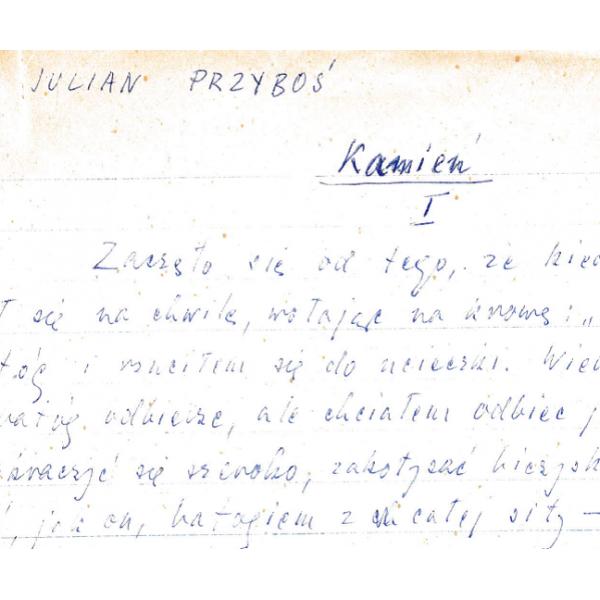 JULIAN PRZYBOŚ
Kamień
I
Zaczęło się od tego, że kied
ł się na chwilę, wołając na krowę: „
tóg i rzuciłem się do ucieczki. Wied
batóg odbierze, ale chciałem odbiec j
kraczyć się szeroko, zakołysać biczysk
, jak on, batogiem z całej siły —